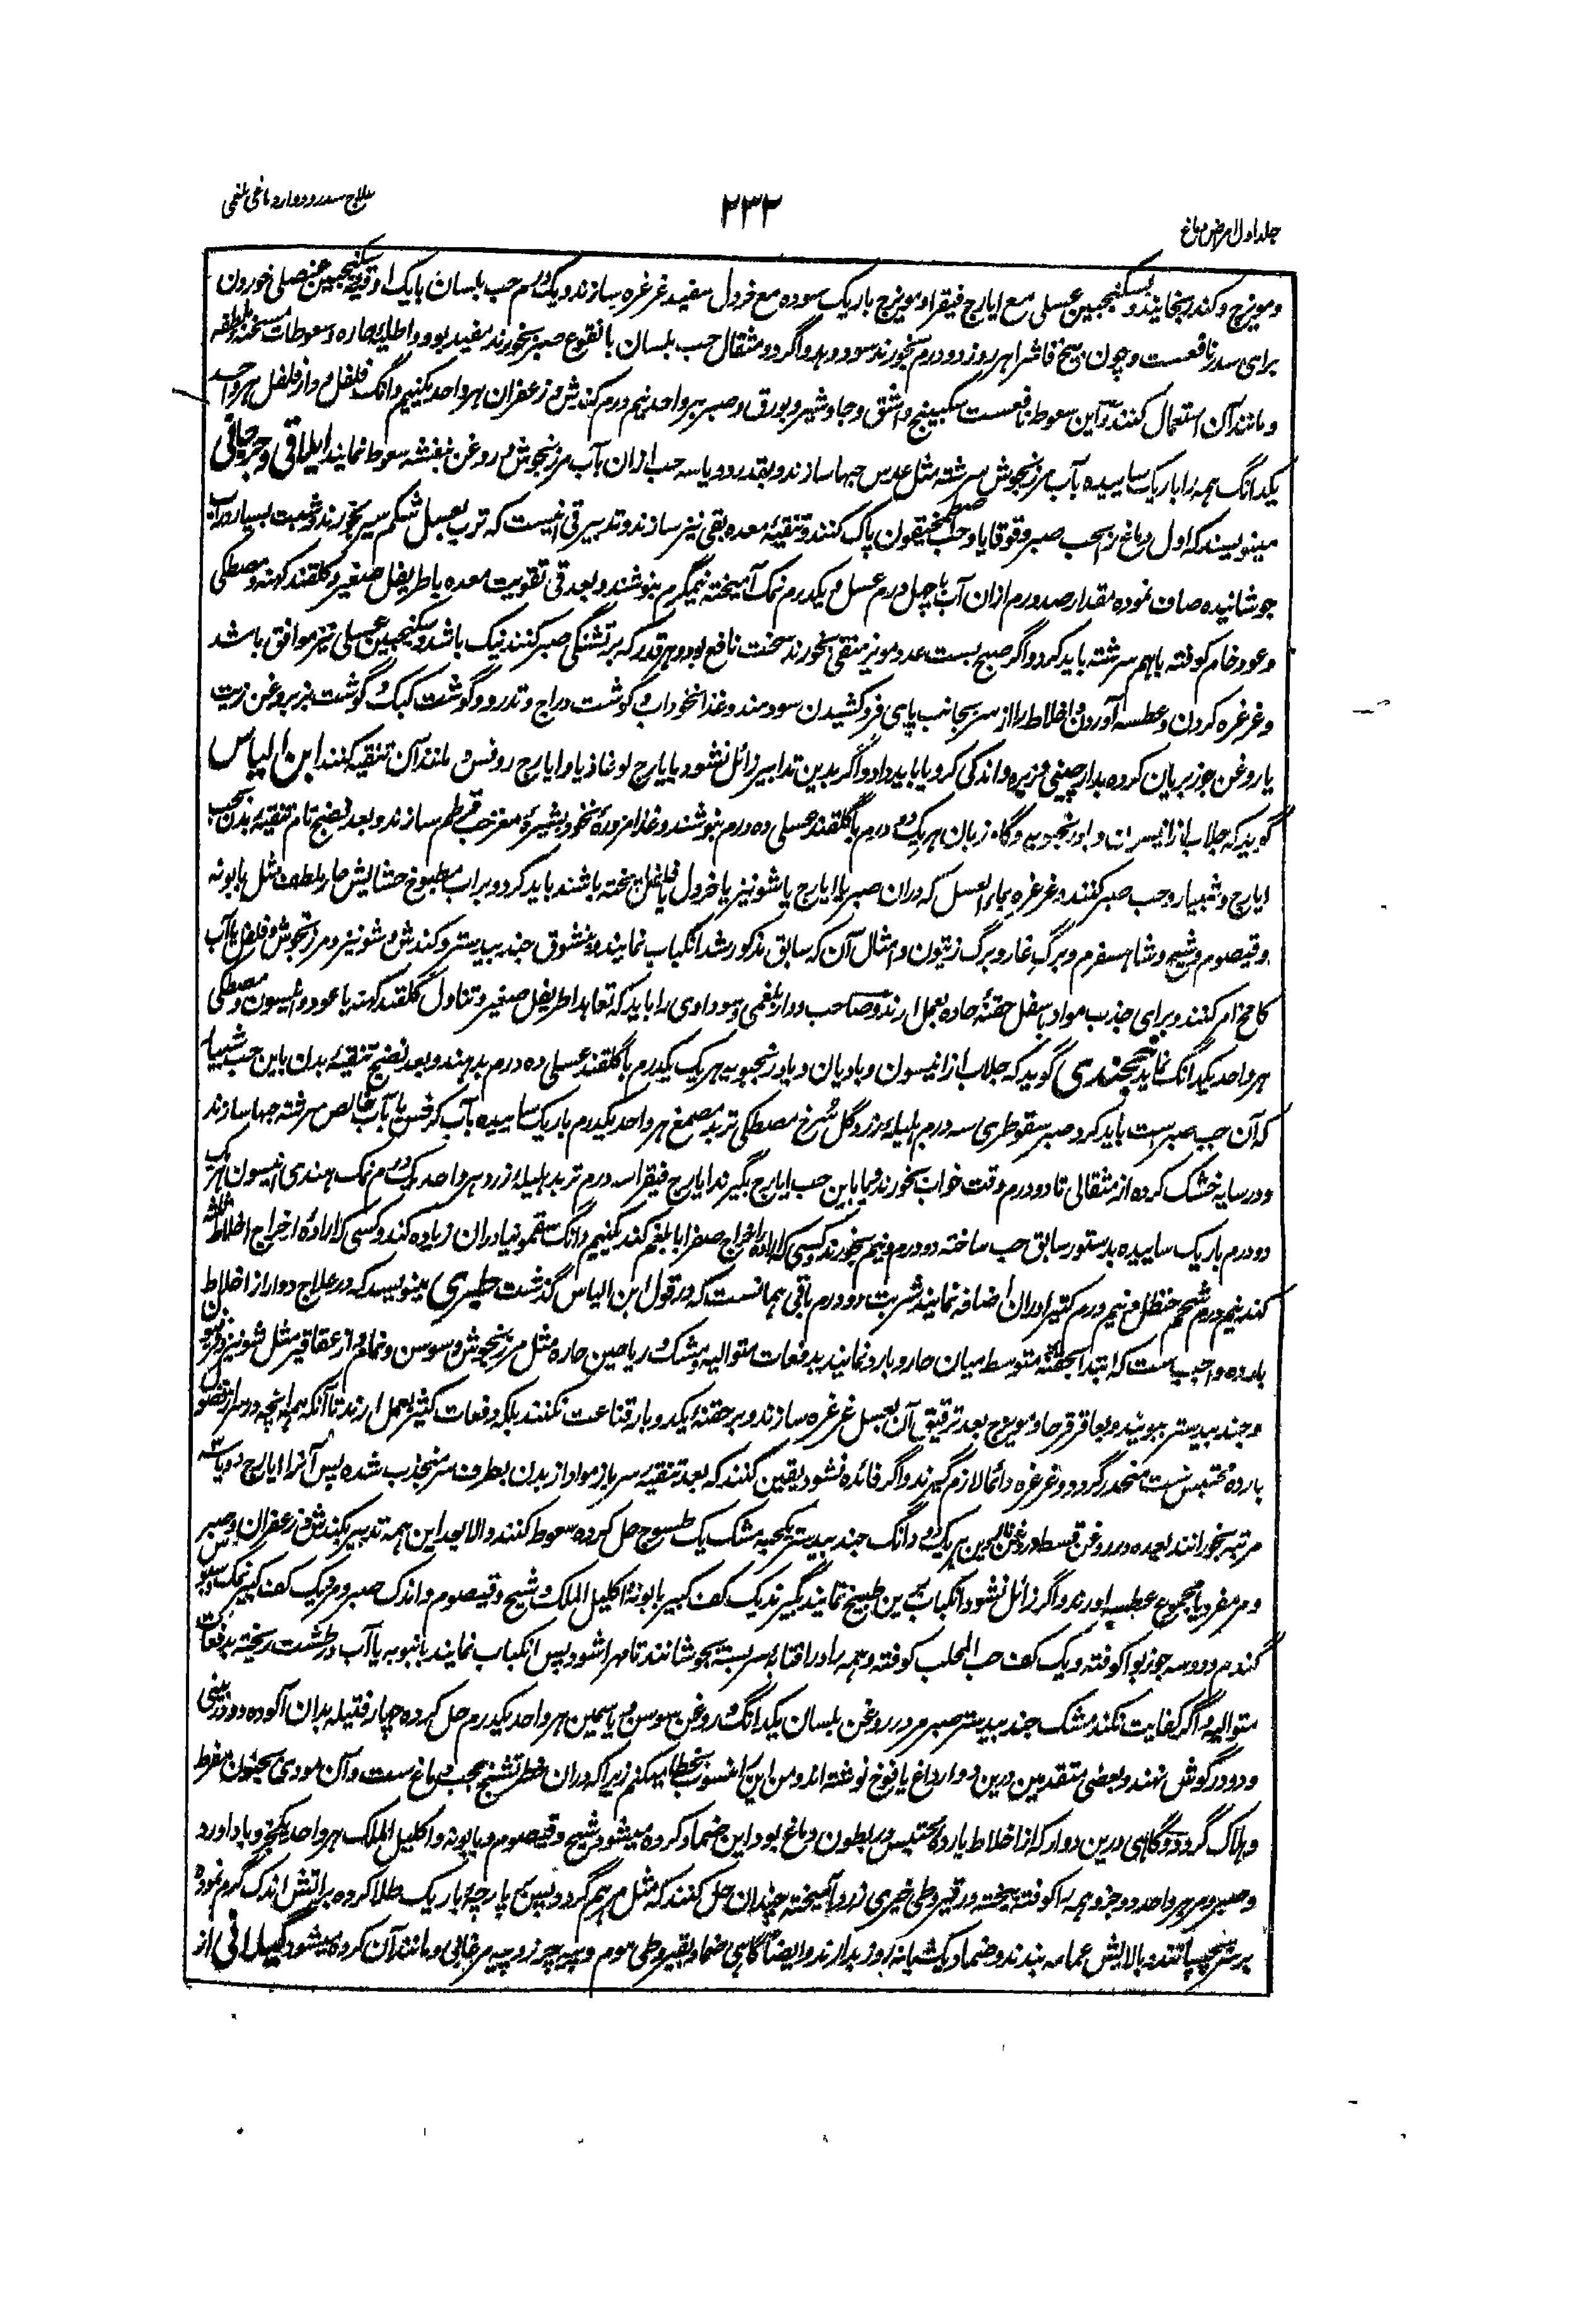 جلد اول امراض دماغ
۲۳۲
علاج سدر و دوار دماغی بلغمی
ومویزج وکندر بخایند وبسکنجبین عسلی مع ایارج فیقرا ومویزج باریک سوده مع خردل سفید غرغره سازند ویک درم حب بلسان بایک اوقیه سکنجبین عنصلی خوردن
برای سدر نافعست وچون بیخ فاشرا هر روز دو درم بخورند سود دهد واگر دو مثقال حب بلسان با نقوع صبر بخورند مفید بود واطلیه حاره وسعوطات مسخنه ملطفه
ومانند آن استعمال کنند واین سعوط نافعست سکبینج واشق وجاوشیر وبورق وصبر هر واحد نیم درم کندش وزعفران هر واحد یکنیم دانگ فلفل ودارفلفل هر واحد
یکدانگ همه را باریک ساییده بآب مرزنجوش سرشته مثل عدس حبها سازند وبقدر دو یا سه حب ازان بآب مرزنجوش وروغن بنفشه سعوط نمایند ایلاقی وجرجانی
مینویسند که اول دماغ را بحب صبر وقوقایا وحب اصطمخیقون پاک کنند وتنقیه معده بقی نیز سازند وتدبیر قی اینست که ترب بعسل شکم سیر بخورند وشبت بسیار درآب
جوشانیده صاف نموده مقدار صد درم ازان آب با چهل درم عسل ویکدرم نمک آمیخته نیمگرم بنوشند وبعد قی تقویت معده باطریفل صغیر وگلقند کهنه ومصطکی
وعود خام کوفته باهم سرشته باید کرد واگر صبح بست عدد مویز منقی بخورند سخت نافع بود وهرقدر که برتشنگی صبر کنند نیک باشد وسکنجبین عسلی نیز موافق باشد
وغرغره کردن وعطسه آوردن واخلاط را از سر بجانب پای فروکشیدن سودمند وغذا نخوداب وگوشت دراج وتدرو وگوشت کبک وگوشت بز بروغن زیت
یا روغن جوز بریان کرده بدارچینی وزیره واندکی کرویا باید داد واگر بدین تدابیر زائل نشود بایارج لوغاذیا وایارج روفس ومانند آن تنقیه کنند ابن الیاس
گوید که جلاب از انیسون وبادرنجبویه وگاوزبان هریک دو درم باگلقند عسلی ده درم بنوشند وغذا مزوره نخود بشیره مغز حب قرطم سازند وبعد نضج تام تنقیه بدن بحب
ایارج وشبیار وحب صبر کنند وغرغره بماءالعسل که دران صبر یا ایارج یا شونیز یا خردل یا فلفل پخته باشند باید کرد وبرآب مطبوخ حشایش حار ملطف مثل بابونه
وقیصوم وشیح وشاهسفرم وبرگ غار وبرگ زیتون وامثال آن که سابق مذکور شد انکباب نمایند ونشوق جندبیدستر وکندش وشونیز ومرزنجوش وفلفل باآب
کامخ ام کنند وبرای جذب مواد باسفل حقنه حاده بعمل ارند وصاحب دوار بلغمی وسوداوی را باید که تعاهد اطریفل صغیر وتناول گلقند کهنه با عود وانیسون ومصطکی
هر واحد یکدانگ نماید خجندی گوید که جلاب از انیسون وبادیان وبادرنجبویه هریک یکدرم باگلقند عسلی ده درم بدهند وبعد نضج تنقیه بدن باین حب شبیار
که آن حب صبر است باید کرد صبر سقوطری سه درم هلیله زرد گل سرخ مصطکی تربد مصمغ هر واحد یکدرم باریک ساییده بآب کرفس یا بآب خالص سرشته حبها سازند
ودر سایه خشک کرده از مثقالی تا دو درم وقت خواب بخورند ویا باین حب ایارج بگیرند ایارج فیقرا سه درم تربد هلیله زرد هر واحد یک درم نمک هندی انیسون هریک
دو درم باریک ساییده بدستور سابق حب ساخته دو درم ونیم بخورند وکسی که اراده اخراج صفرا بابلغم کند یکنیم دانگ سقمونیا دران زیاده کند وکسی که اراده اخراج اخلاط ثلثه
کند نیم درم شحم حنظل ونیم درم کتیرا دران اضافه نمایند شربت دو درم باقی همانست که درقول ابن الیاس گذشت طبری مینویسد که درعلاج دوار از اخلاط
بارده واجب است که ابتدا بحقنه متوسط میان حار وبارد نمایند بدفعات متوالیه ومشک وریاحین حاره مثل مرزنجوش وسوسن ونمام واز عقاقیر مثل شونیز وفرفیون
وجندبیدستر ببویند وبعاقرقرحا ومویزج بعد ترقیق آن بعسل غرغره سازند وبرحقنه یکدو بار قناعت نکنند بلکه دفعات کثیر بعمل ارند تا آنکه همه آنچه درسر از فضول
بارده محتبس ست منحدر گردد وغرغره دائما لازم گیرند واگر فائده نشود یقین کنند که بعد تنقیه سر باز مواد از بدن بطرف سر منجذب شده پس آنرا ایارج دو یا سه
مرتبه بخورانند بعده در روغن قسط وروغن بابونین هریک دو دانگ جندبیدستر یکحبه مشک یک طسوج حل کرده سعوط کنند والا بعد این همه تدبیر بکندش وزعفران وصبر
ومر مفرد یا مجموع عطسه آورند واگر زائل نشود انکباب بدین طبیخ نمایند بگیرند یک کف کبیر بابونه واکلیل الملک وشیح وقیصوم واندک صبر ومر ویک کف کبیر نمک وسبوس
گندم ودو سه جوزبوا کوفته ویک کف حب المحلب کوفته وهمه را درآفتابه سربسته بجوشانند تا مهرا شود پس انکباب نمایند بانبوبه یا آب درطشت ریخته بدفعات
متوالیه واگر کفایت نکند مشک جندبیدستر صبر مر در روغن بلسان یکدانگ وروغن سوسن ویاسمین هر واحد یکدرم حل کرده چهار فتیله بدان آلوده دو دربینی
ودو درگوش نهند وبعضی متقدمین درین دوار داغ یافوخ نوشته اند ومن این را منسوب بخطا میکنم زیراکه دران خطر تشنج بحجب دماغ ست وآن مودی بجنون مفرط
وهلاک گردد وگاهی درین دوار که از اخلاط بارده محتبس دربطون دماغ بود این ضماد کرده میشود شیح وقیصوم وبابونه واکلیل الملک هر واحد یکجزو وباداورد
وصبر ومر هر واحد دو جزو همه را کوفته بیخته در قیروطی خیری زرد آمیخته چندان حل کنند که مثل مرهم گردد پس بر پارچه باریک طلا کرده برآتش اندک گرم نموده
برسر چسپانند وبالایش عمامه بندند وضماد یک شبانه روز بدارند وایضاً گاهی ضماد بقیروطی موم وپیه چرز وپیه مرغابی ومانند آن کرده میشود گیلانی از